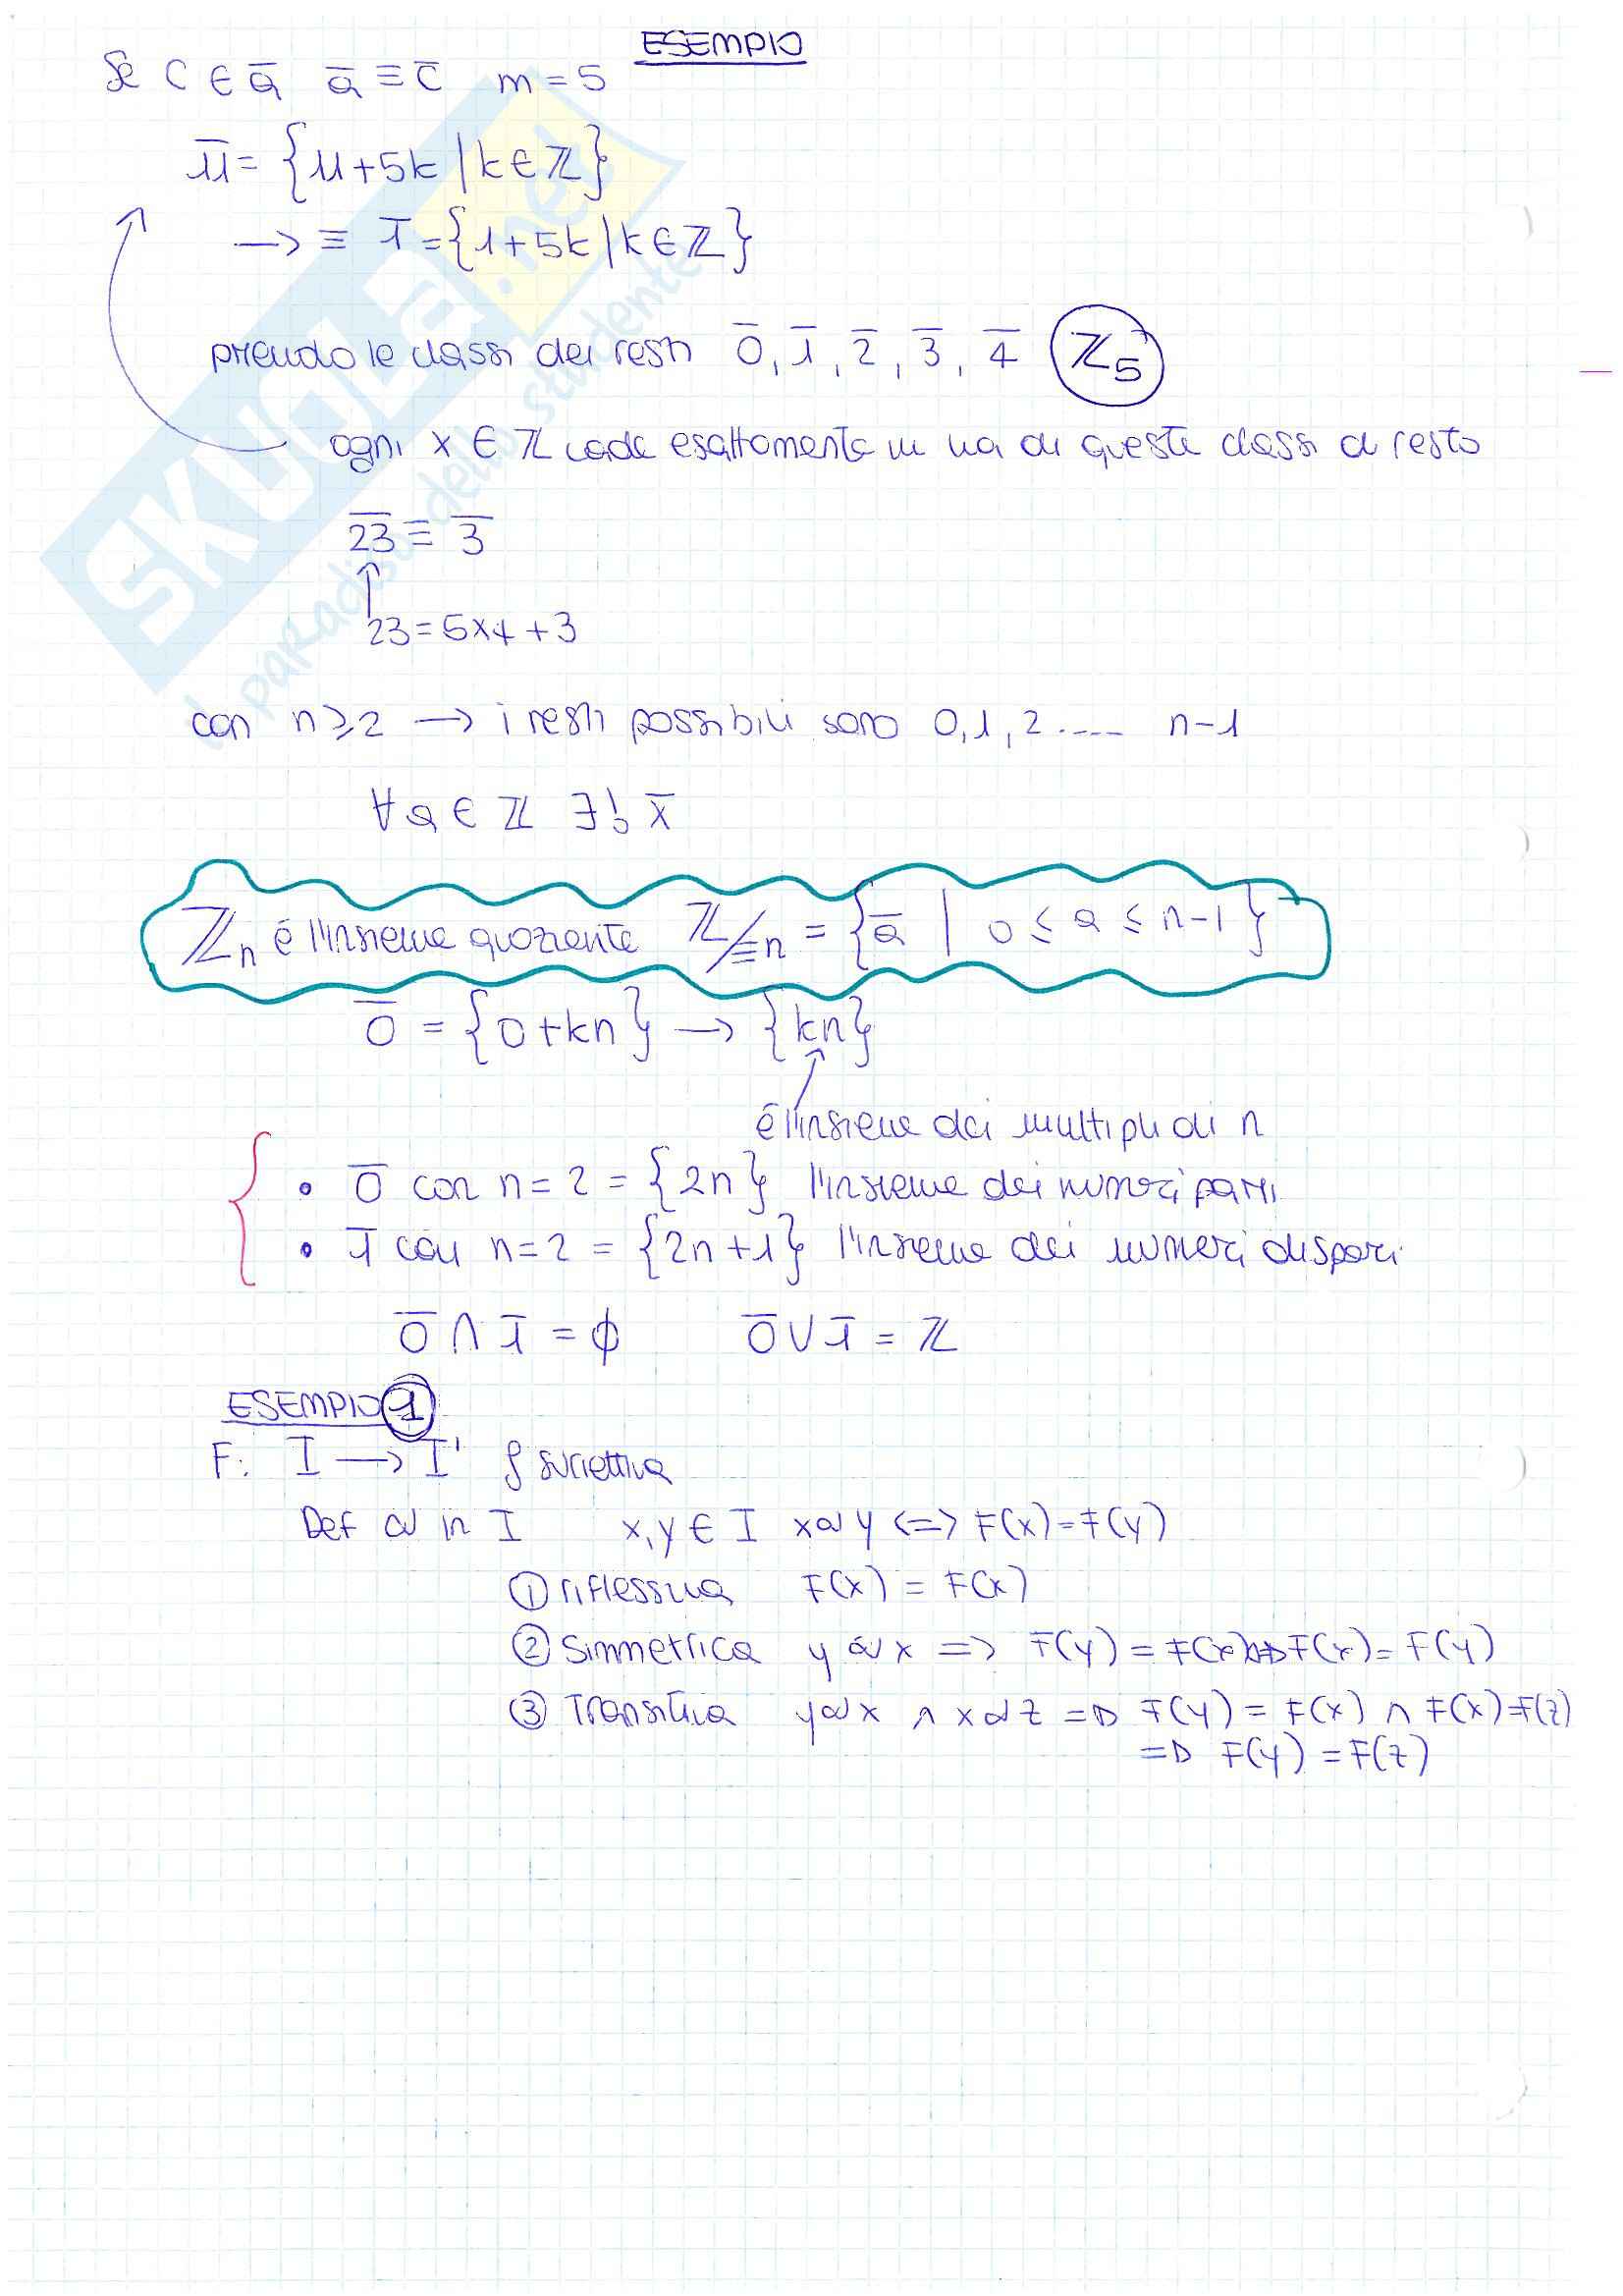 ESEMPIO
Se C ∈ a̅ a̅ ≡ c̅ m = 5
1̅1̅ = {11+5k | k ∈ ℤ}
→ ≡ 1̅ = {1+5k | k ∈ ℤ}
prendo le classi dei resti 0̅, 1̅, 2̅, 3̅, 4̅ ℤ₅
ogni x ∈ ℤ cade esattamente in una di queste classi di resto
2̅3̅ ≡ 3̅
↑
23 = 5x4 + 3
con n ≥ 2 → i resti possibili sono 0, 1, 2 ..... n-1
∀ a ∈ ℤ ∃! x̅
ℤₙ é l'insieme quoziente ℤ/≡n = {a̅ | 0 ≤ a ≤ n-1}
0̅ = {0+kn} → {kn}
é l'insieme dei multipli di n
• 0̅ con n = 2 = {2n} l'insieme dei numeri pari
• 1̅ con n = 2 = {2n+1} l'insieme dei numeri dispari
0̅ ∩ 1̅ = ∅ 0̅ ∪ 1̅ = ℤ
ESEMPIO 1
F: I → I' f suriettiva
Def ∾ in I x, y ∈ I x ∾ y <=> F(x) = F(y)
① riflessiva F(x) = F(x)
② Simmetrica y ∾ x => F(y) = F(x) => F(x) = F(y)
③ Transitiva y ∾ x ∧ x ∾ z => F(y) = F(x) ∧ F(x) = F(z)
=> F(y) = F(z)
SKUOLA.net
il paradiso dello studente